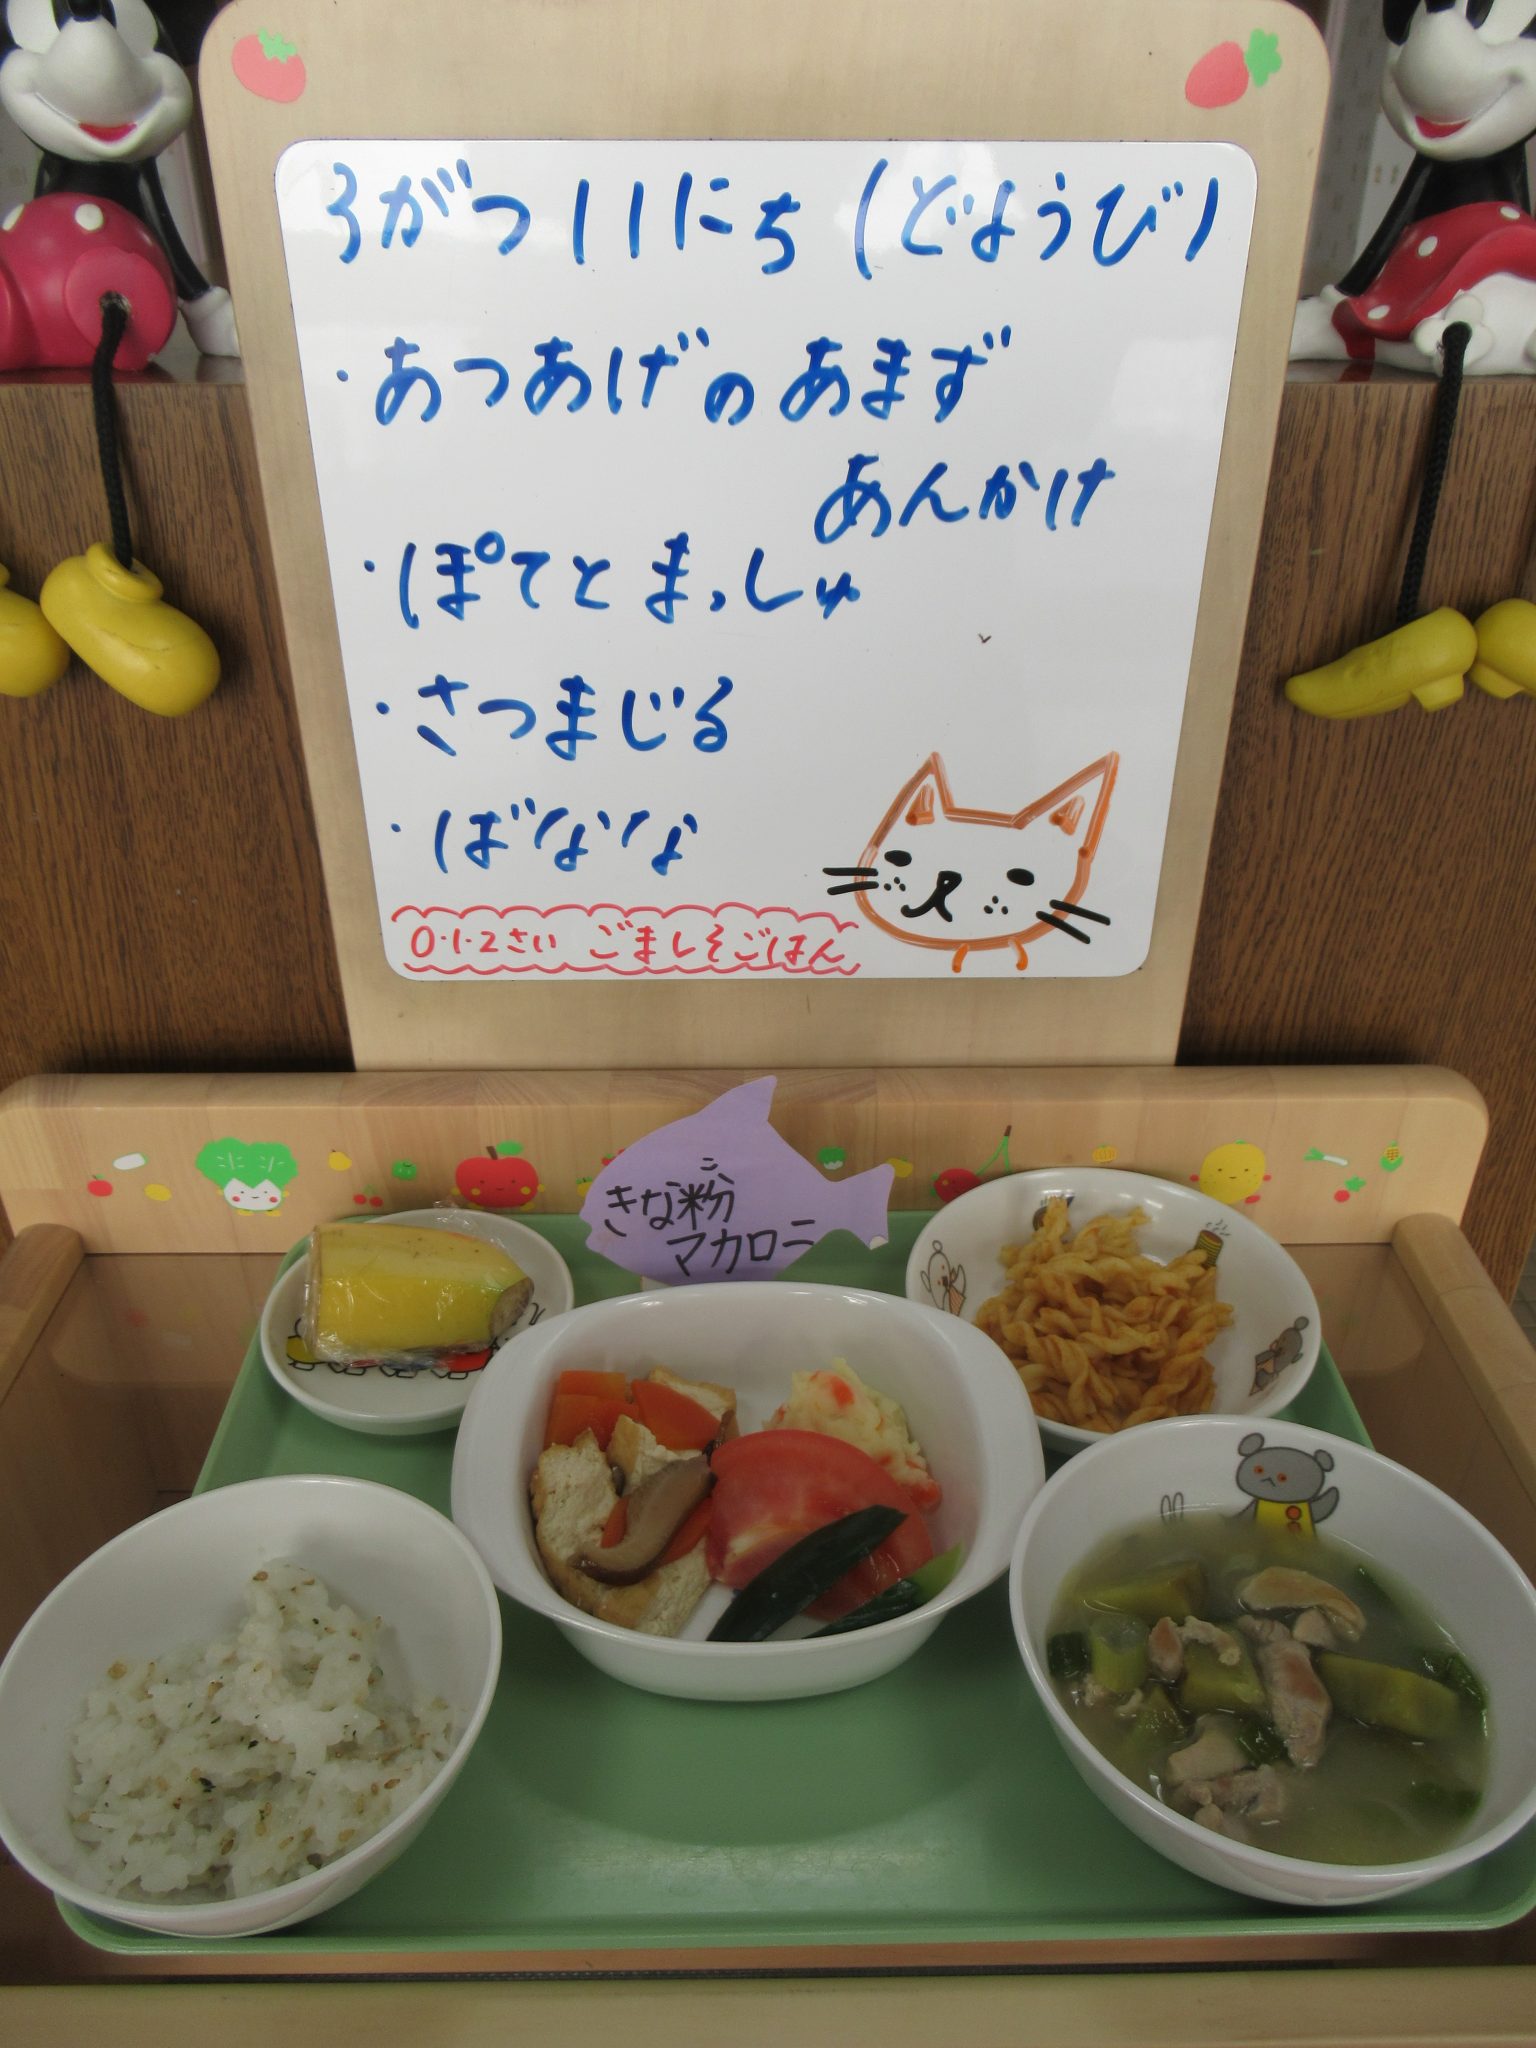 3がつ11にち(どようび)
・あつあげのあまず
あんかけ
・ぽてとまっしゅ
・さつまじる
・ばなな
0・1・2さい ごましそごはん
きな粉
マカロニ